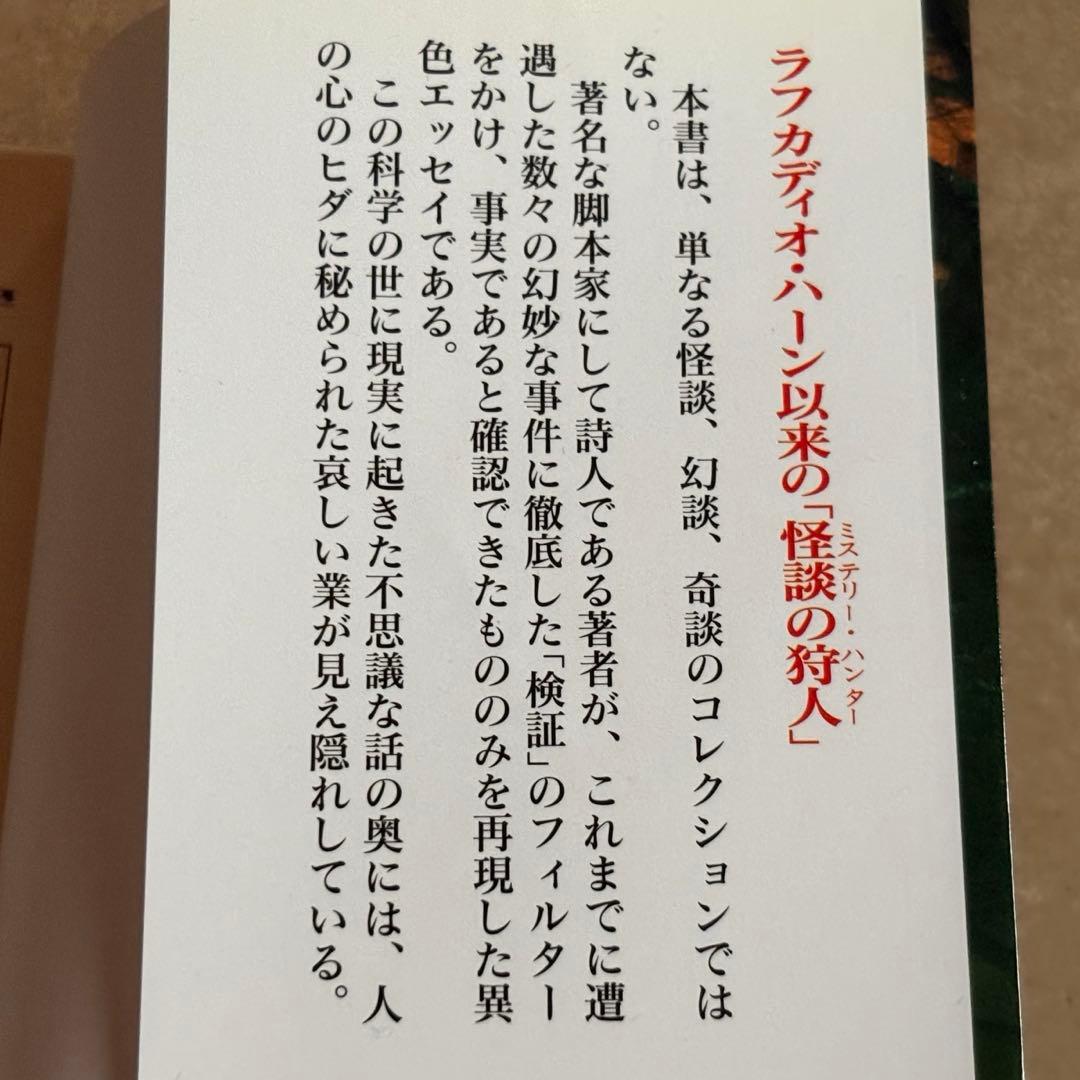 ラフカディオ・ハーン以来の「怪談の狩人」
ミステリー・ハンター
本書は、単なる怪談、幻談、奇談のコレクションでは
ない。
著名な脚本家にして詩人である著者が、これまでに遭
遇した数々の幻妙な事件に徹底した「検証」のフィルター
をかけ、事実であると確認できたもののみを再現した異
色エッセイである。
この科学の世に現実に起きた不思議な話の奥には、人
の心のヒダに秘められた哀しい業が見え隠れしている。